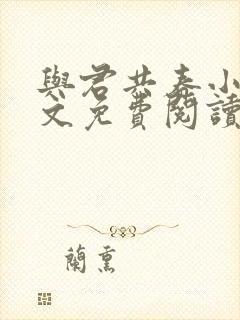 與君共春小
文免費閱讀
蘭熏